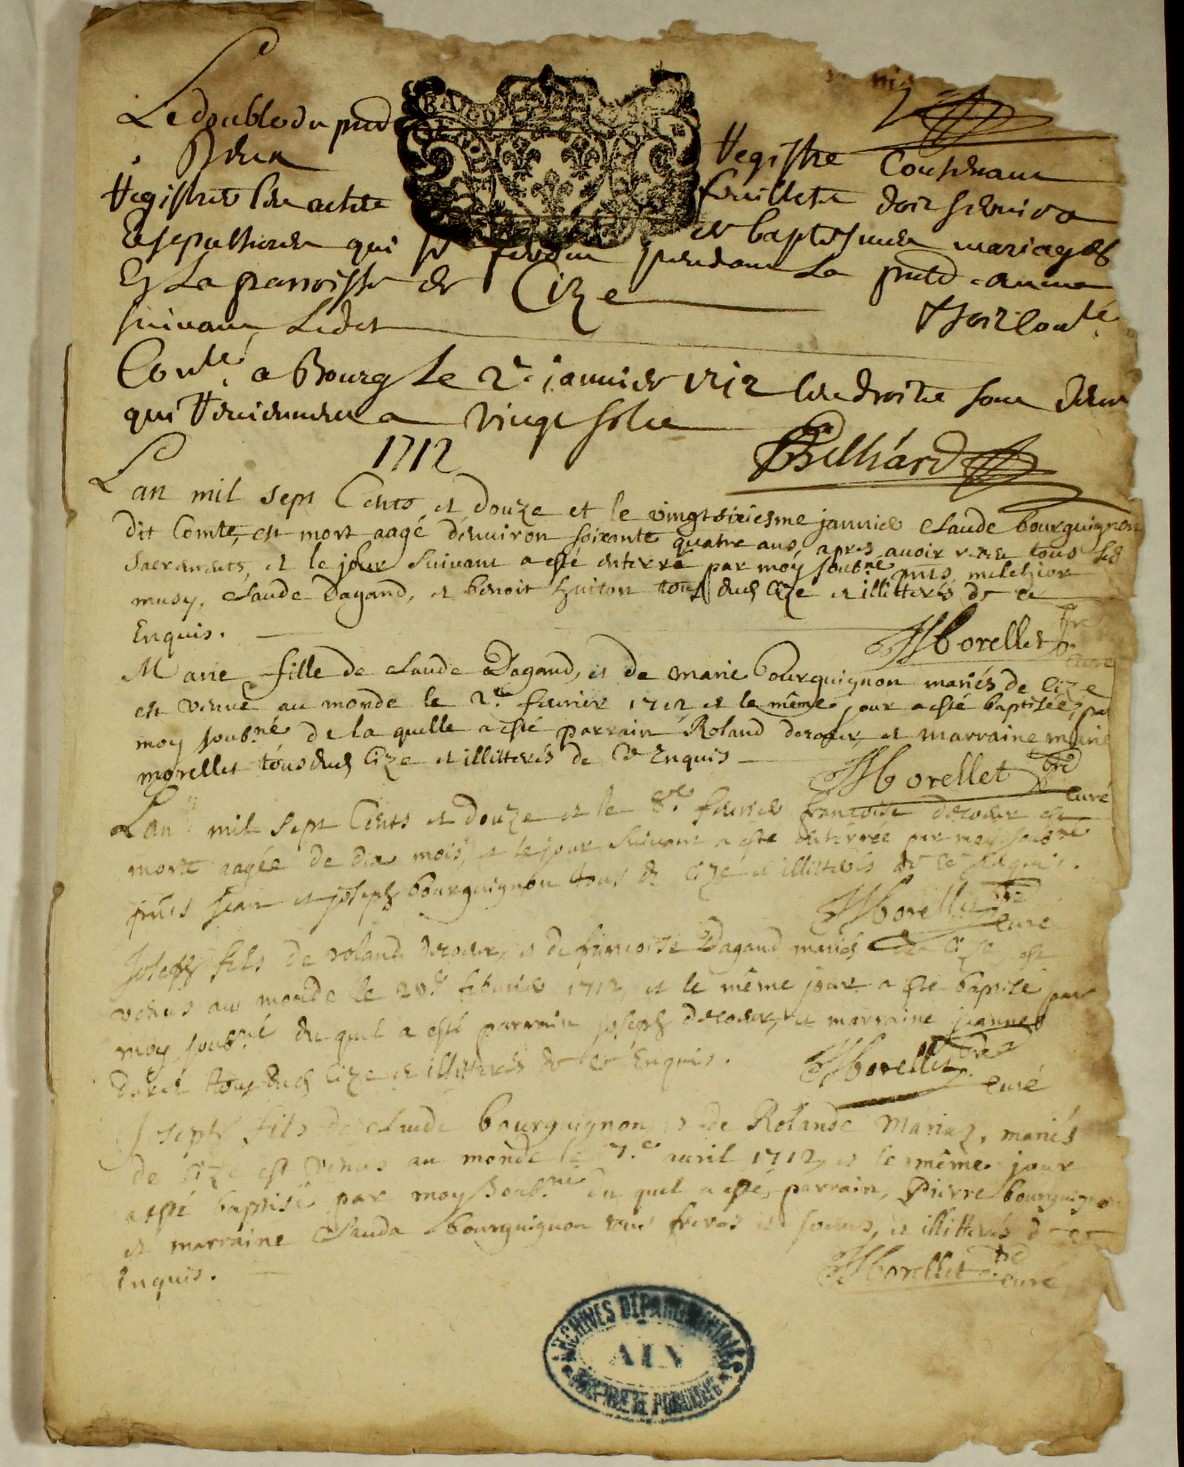 Le double du pnt
Registre Contenant
deux
feuillets doit servir a
Registrer les actes de baptesmes mariages
Et sepultures qui se feront pendant La pnte annee
En La parroisse de Cize
suivant Ledit
Conlé a Bourg Le 2e janvier 1712 les droits sont deux
qui Reviennent a vingt sols
1712
Lan mil sept Cents et douze et le vingtsixiesme janvier Claude bourguignon
dit Comte, est mort aagé d'enuiron soixante quatre ans, apres avoir receu tous les
sacrements, et le jour suivant a esté enterré par moy soubné pnts melchior
musy, Claude Dagand, et benoit tous dud Cize et illitterés de ce
Enquis.
Morellet pre curé
Marie fille de Claude Dagand, et de marie Bourguignon mariés de Cize
est venuë au monde le 2e feurier 1712 et le même jour a esté baptisée, par
moy soubné de la quelle a esté parrain Roland decoeur, et marraine marie
morellet tous dud Cize et illitterés de ce Enquis
Morellet pre curé
Lan mil sept Cents et douze et le 8e feurier francoise decoeur est
morte aagée de dix mois, et le jour suivant a esté enterrée par moy soubné
pnts jean et joseph bourguignon tous de Cize et illitterés de ce Enquis.
Morellet pre curé
Joseph fils de roland decoeur, et de francoise Dagand mariés de Cize, est
venus au monde le feburier 1712, et le même jour a esté baptisé par
moy soubné du quel a esté parrain joseph decoeur, et marraine jeanne
tous dud Cize et illitterés de ce Enquis.
Morellet pre curé
Joseph fils de Claude bourguignon et de Rolande Mariaz, mariés
de Cize est venus au monde le 7e auril 1712, et le même jour
a esté baptisé par moy soubné du quel a esté, parrain, Pierre bourguignon
et marraine Clauda bourguignon frères et soeurs, et illitterés de ce
Enquis.
Morellet pre curé
ARCHIVES DÉPARTEMENTALES
AIN
PROPRIÉTÉ PUBLIQUE